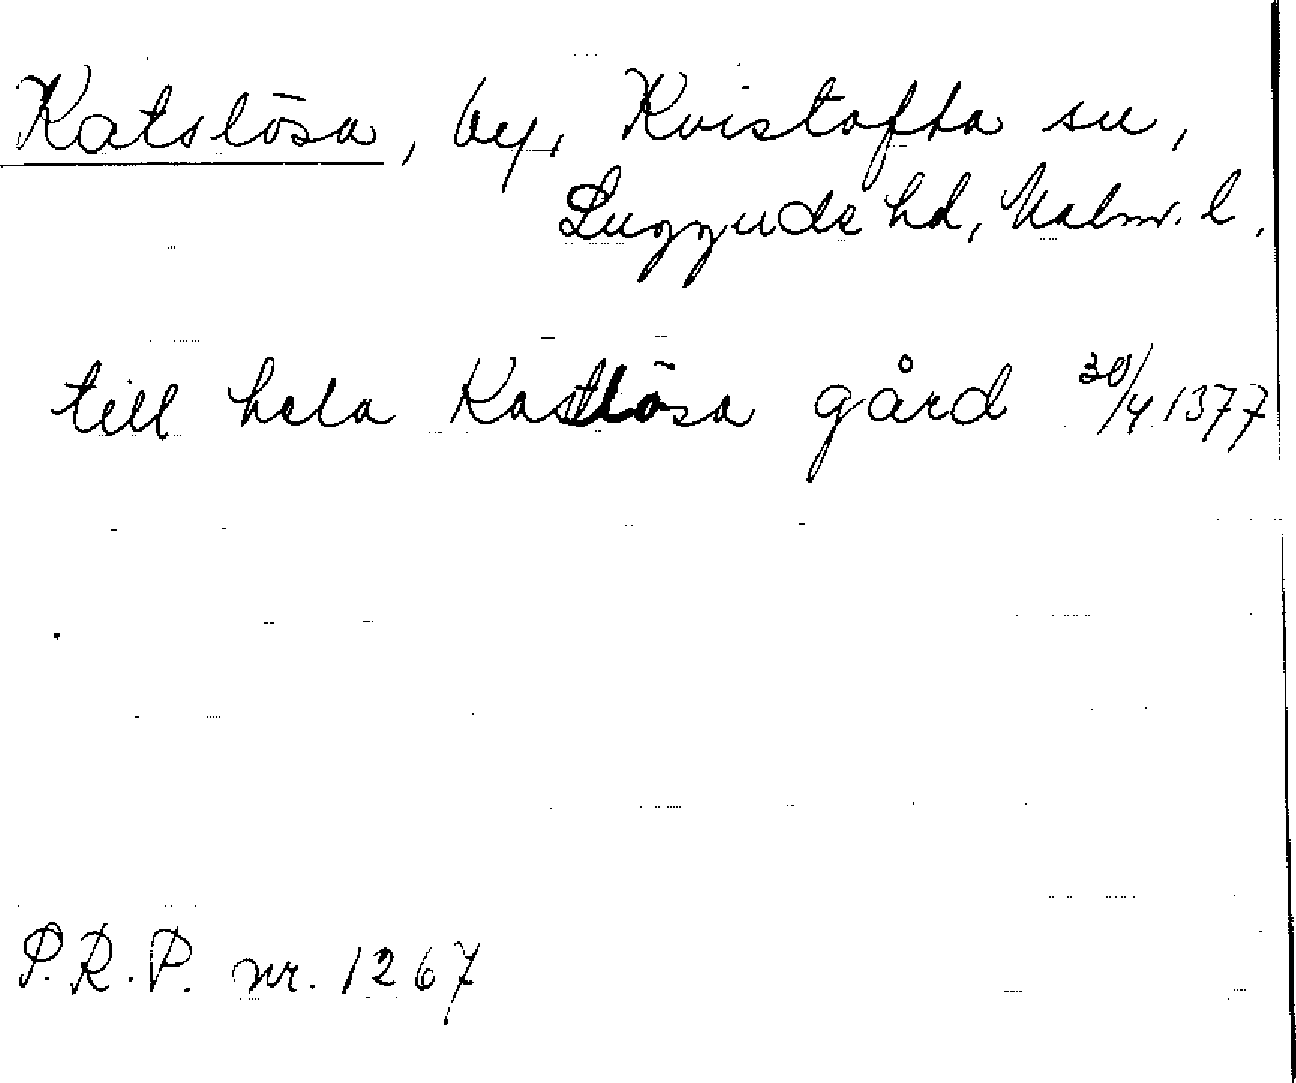 Katslösa, by, Kvistofta sn,
Luggude hd, Malm. l.
till hela Kastlösa gård 30/4 1377
P.R.P. nr. 1267